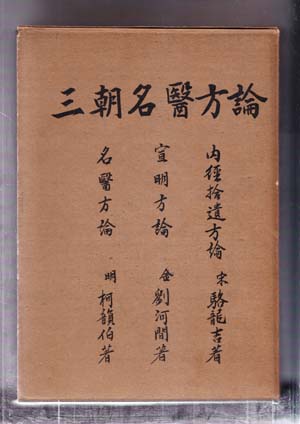 三朝名醫方論
內徑捨遺方論 宋 駱龍吉著
宣明方論 金 劉河間著
名醫方論 明 柯韻伯著